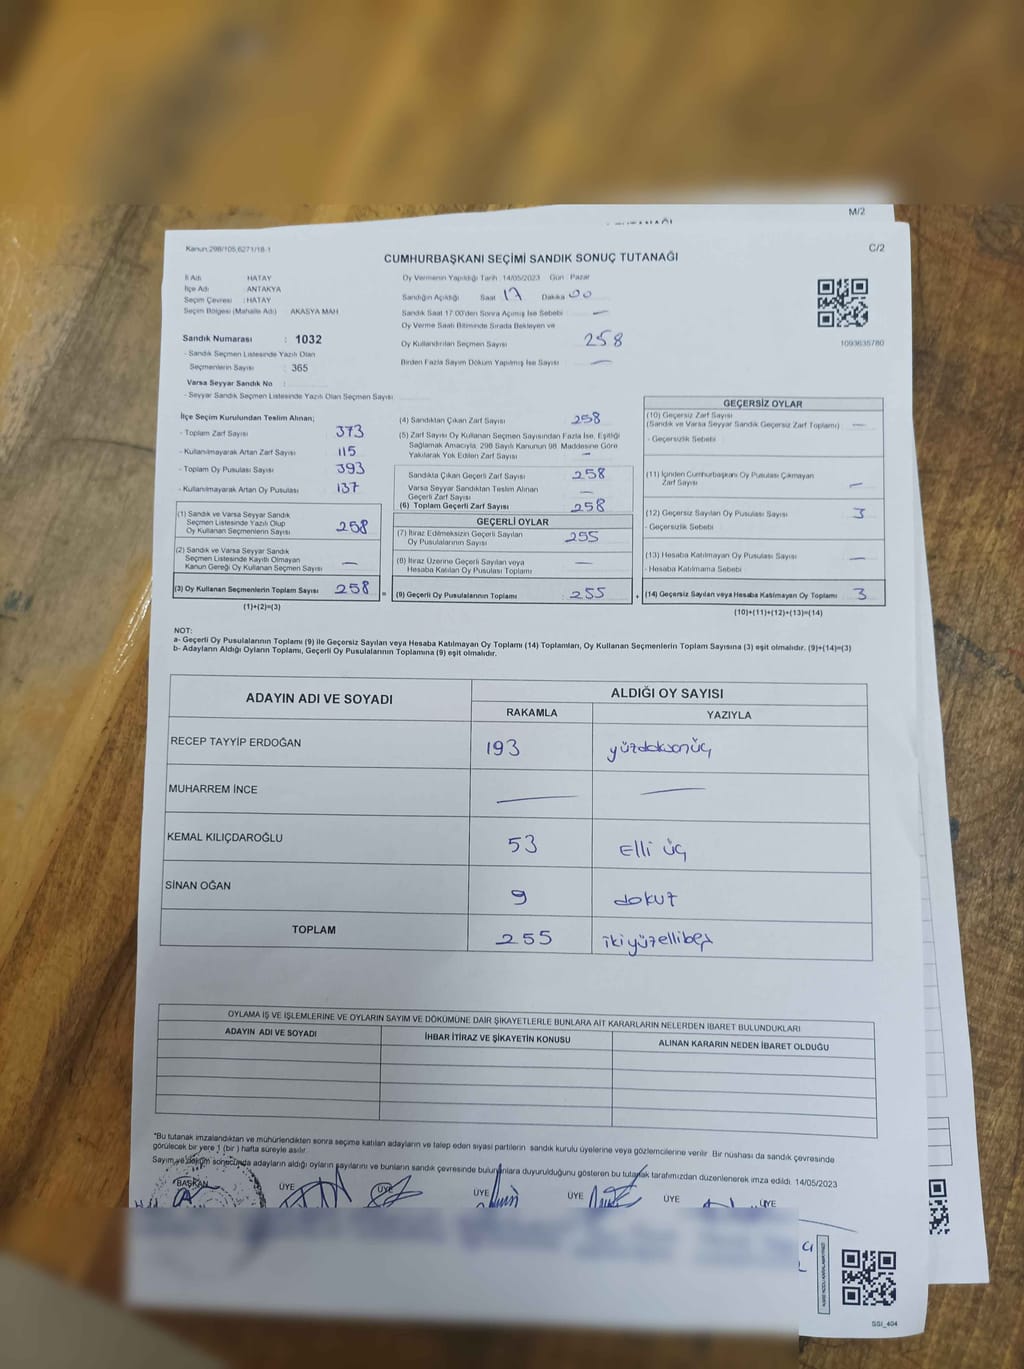 M/2
Kanun:298/105,6271/18-1
C/2
CUMHURBAŞKANI SEÇİMİ SANDIK SONUÇ TUTANAĞI
İl Adı : HATAY
İlçe Adı : ANTAKYA
Seçim Çevresi : HATAY
Seçim Bölgesi (Mahalle Adı) : AKASYA MAH
Oy Vermenin Yapıldığı Tarih : 14/05/2023 Gün : Pazar
Sandığın Açıldığı Saat 17 Dakika 00
Sandık Saat 17.00'den Sonra Açılmış İse Sebebi —
Oy Verme Saati Bitiminde Sırada Bekleyen ve
Oy Kullandırılan Seçmen Sayısı 258
Birden Fazla Sayım Döküm Yapılmış İse Sayısı —
1093635780
Sandık Numarası : 1032
- Sandık Seçmen Listesinde Yazılı Olan
Seçmenlerin Sayısı : 365
Varsa Seyyar Sandık No :
- Seyyar Sandık Seçmen Listesinde Yazılı Olan Seçmen Sayısı
İlçe Seçim Kurulundan Teslim Alınan;
- Toplam Zarf Sayısı : 373
- Kullanılmayarak Artan Zarf Sayısı : 115
- Toplam Oy Pusulası Sayısı : 393
- Kullanılmayarak Artan Oy Pusulası : 137
(1) Sandık ve Varsa Seyyar Sandık
Seçmen Listesinde Yazılı Olup
Oy Kullanan Seçmenlerin Sayısı : 258
(2) Sandık ve Varsa Seyyar Sandık
Seçmen Listesinde Kayıtlı Olmayan
Kanun Gereği Oy Kullanan Seçmen Sayısı : —
(3) Oy Kullanan Seçmenlerin Toplam Sayısı : 258
(1)+(2)=(3)
(4) Sandıktan Çıkan Zarf Sayısı : 258
(5) Zarf Sayısı Oy Kullanan Seçmen Sayısından Fazla İse, Eşitliği
Sağlamak Amacıyla, 298 Sayılı Kanunun 98. Maddesine Göre
Yakılarak Yok Edilen Zarf Sayısı : —
Sandıkta Çıkan Geçerli Zarf Sayısı : 258
Varsa Seyyar Sandıktan Teslim Alınan
Geçerli Zarf Sayısı : —
(6) Toplam Geçerli Zarf Sayısı : 258
GEÇERLİ OYLAR
(7) İtiraz Edilmeksizin Geçerli Sayılan
Oy Pusulalarının Sayısı : 255
(8) İtiraz Üzerine Geçerli Sayılan veya
Hesaba Katılan Oy Pusulası Toplamı : —
(9) Geçerli Oy Pusulalarının Toplamı : 255
GEÇERSİZ OYLAR
(10) Geçersiz Zarf Sayısı
(Sandık ve Varsa Seyyar Sandık Geçersiz Zarf Toplamı) : —
- Geçersizlik Sebebi
(11) İçinden Cumhurbaşkanı Oy Pusulası Çıkmayan
Zarf Sayısı : —
(12) Geçersiz Sayılan Oy Pusulası Sayısı : 3
- Geçersizlik Sebebi
(13) Hesaba Katılmayan Oy Pusulası Sayısı : —
- Hesaba Katılmama Sebebi
(14) Geçersiz Sayılan veya Hesaba Katılmayan Oy Toplamı : 3
(10)+(11)+(12)+(13)=(14)
NOT:
a- Geçerli Oy Pusulalarının Toplamı (9) ile Geçersiz Sayılan veya Hesaba Katılmayan Oy Toplamı (14) Toplamları, Oy Kullanan Seçmenlerin Toplam Sayısına (3) eşit olmalıdır. (9)+(14)=(3)
b- Adayların Aldığı Oyların Toplamı, Geçerli Oy Pusulalarının Toplamına (9) eşit olmalıdır.
ADAYIN ADI VE SOYADI ALDIĞI OY SAYISI
RAKAMLA YAZIYLA
RECEP TAYYİP ERDOĞAN 193 yüzdoksanüç
MUHARREM İNCE — —
KEMAL KILIÇDAROĞLU 53 Elli üç
SİNAN OĞAN 9 dokuz
TOPLAM 255 ikiyüzellibeş
OYLAMA İŞ VE İŞLEMLERİNE VE OYLARIN SAYIM VE DÖKÜMÜNE DAİR ŞİKAYETLERLE BUNLARA AİT KARARLARIN NELERDEN İBARET BULUNDUKLARI
ADAYIN ADI VE SOYADI İHBAR İTİRAZ VE ŞİKAYETİN KONUSU ALINAN KARARIN NEDEN İBARET OLDUĞU
*Bu tutanak imzalandıktan ve mühürlendikten sonra seçime katılan adayların ve talep eden siyasi partilerin sandık kurulu üyelerine veya gözlemcilerine verilir. Bir nüshası da sandık çevresinde
görülecek bir yere 1 (bir) hafta süreyle asılır.
Sayım ve döküm sonucunda adayların aldığı oyların sayılarını ve bunların sandık çevresinde bulunanlara duyurulduğunu gösteren bu tutanak tarafımızdan düzenlenerek imza edildi. 14/05/2023
BAŞKAN ÜYE ÜYE ÜYE ÜYE ÜYE ÜYE
SSI_404